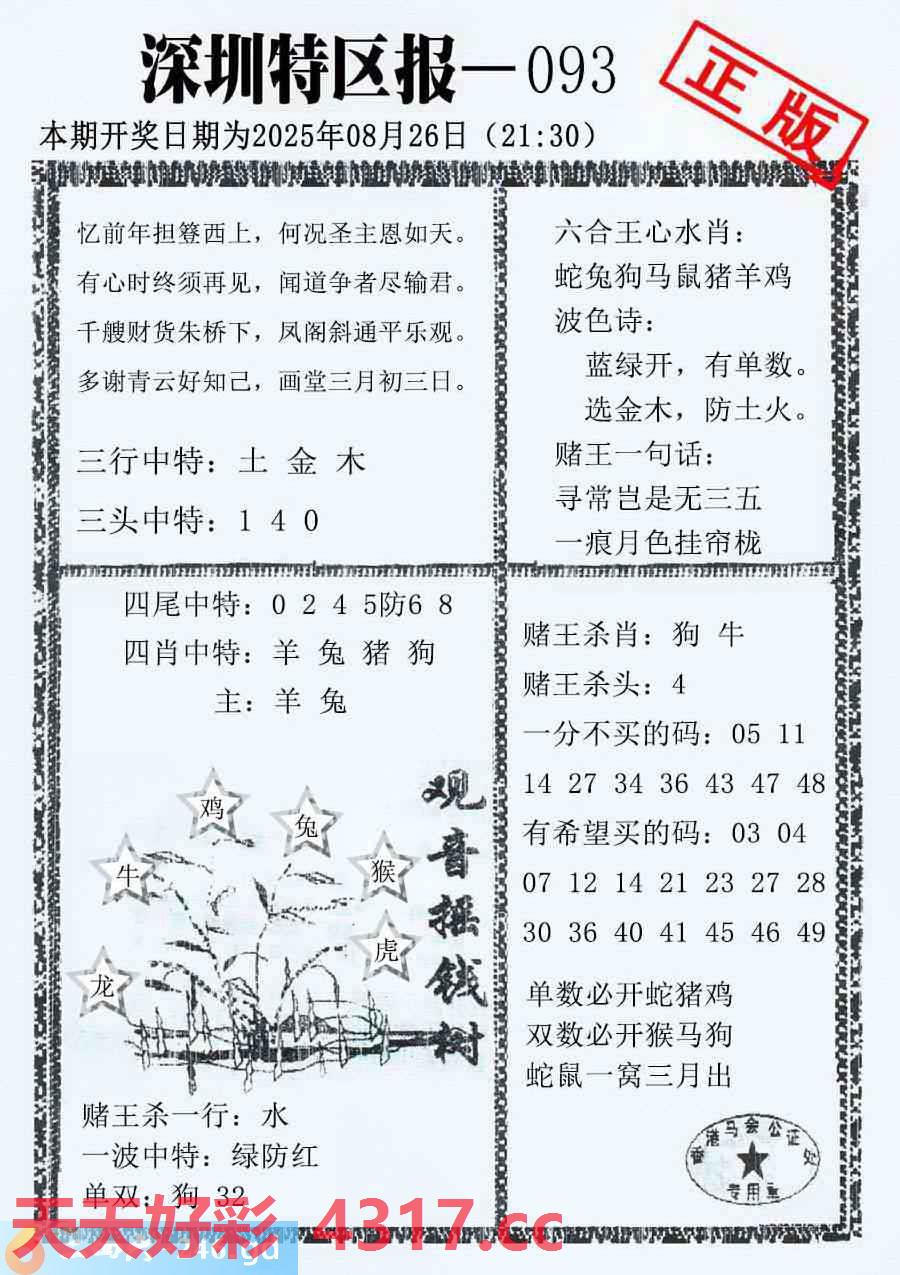 深圳特区报—093
正版
本期开奖日期为2025年08月26日（21:30）
忆前年担簦西上，何况圣主恩如天。
有心时终须再见，闻道争者尽输君。
千艘财货朱桥下，凤阁斜通平乐观。
多谢青云好知己，画堂三月初三日。
三行中特：土 金 木
三头中特：1 4 0
六合王心水肖：
蛇兔狗马鼠猪羊鸡
波色诗：
蓝绿开，有单数。
选金木，防土火。
赌王一句话：
寻常岂是无三五
一痕月色挂帘栊
四尾中特：0 2 4 5防6 8
四肖中特：羊 兔 猪 狗
主：羊 兔
鸡
兔
牛
猴
虎
龙
观音摇钱树
赌王杀一行：水
一波中特：绿防红
单双：狗 32
赌王杀肖：狗 牛
赌王杀头：4
一分不买的码：05 11
14 27 34 36 43 47 48
有希望买的码：03 04
07 12 14 21 23 27 28
30 36 40 41 45 46 49
单数必开蛇猪鸡
双数必开猴马狗
蛇鼠一窝三月出
香港马会公证处
专用章
天天好彩 4317.cc